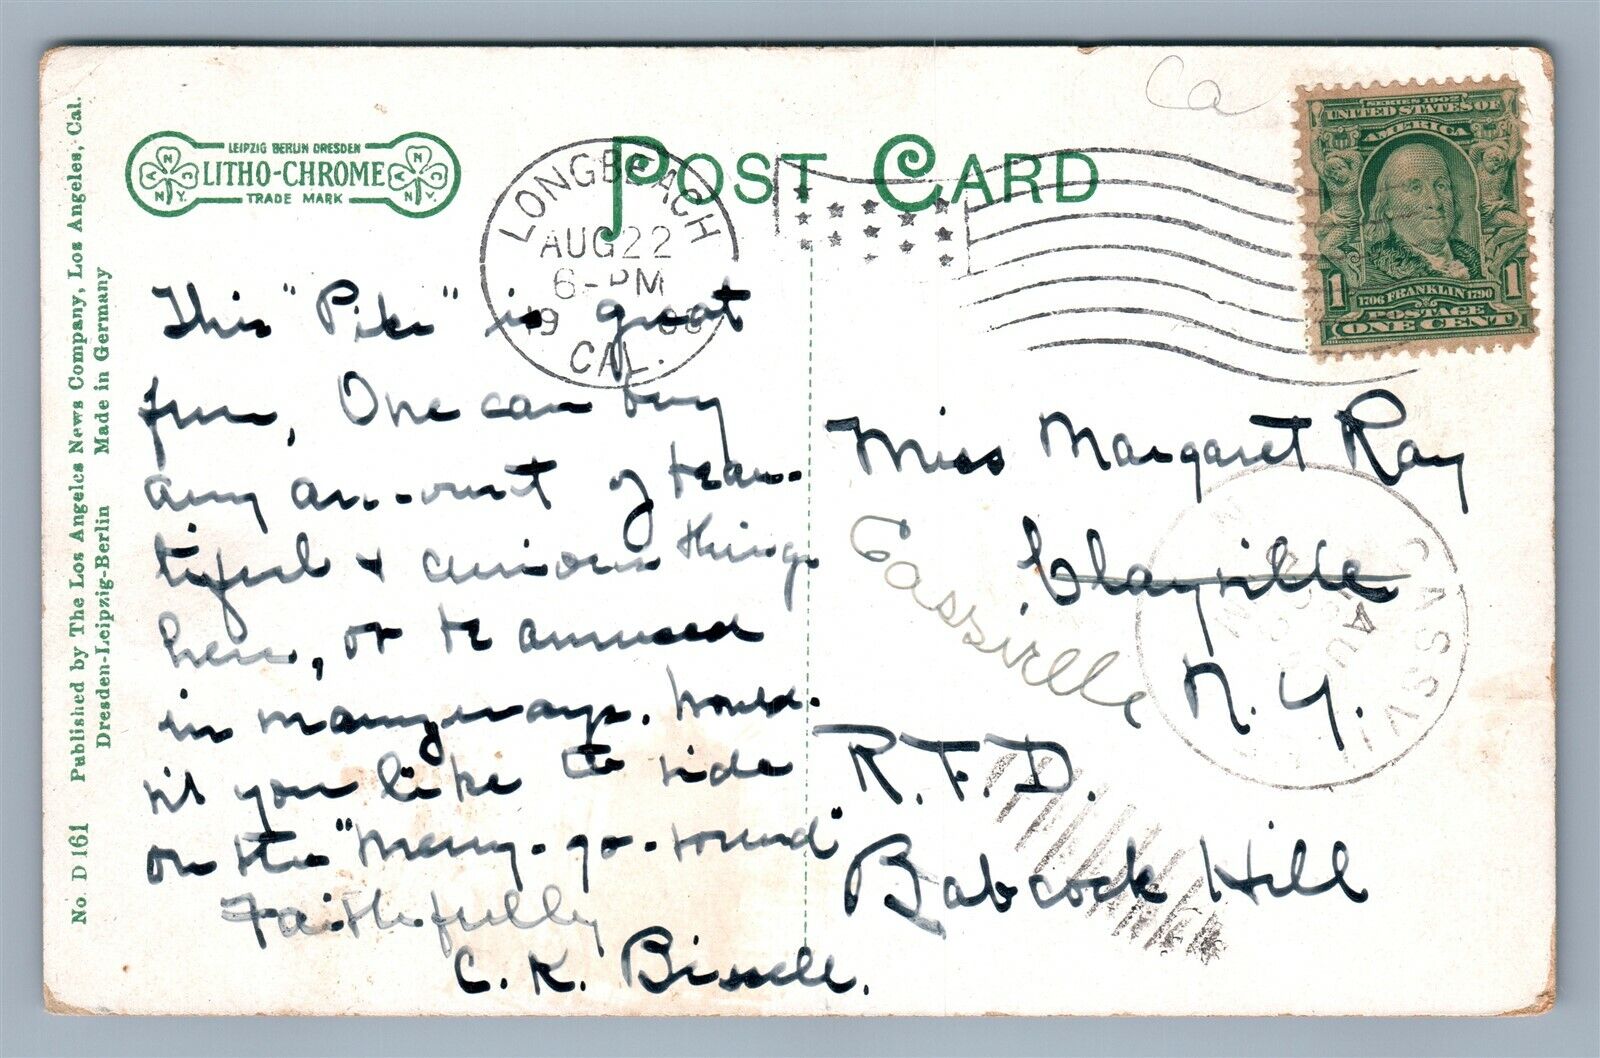 No. D 161 Published by The Los Angeles News Company, Los Angeles, Cal.
Dresden-Leipzig-Berlin Made in Germany
LEIPZIG BERLIN DRESDEN
LITHO-CHROME
TRADE MARK
POST CARD
LONGBEACH
AUG 22
6-PM
CAL.
Ca
SERIES 1902
UNITED STATES OF
AMERICA
1 1
1706 FRANKLIN 1790
POSTAGE
ONE CENT
This "Pike" is great
fun, One can buy
any am-ount of beau-
tiful & curious things
here, or be amused
in many ways. Would-
n't you like to ride
on the "Merry-go-round"
Faithfully
C. K. Bissell.
Miss Margaret Ray
Clayville
Cassville
N. Y.
R.F.D.
Babcock Hill
CASSVI
AUG